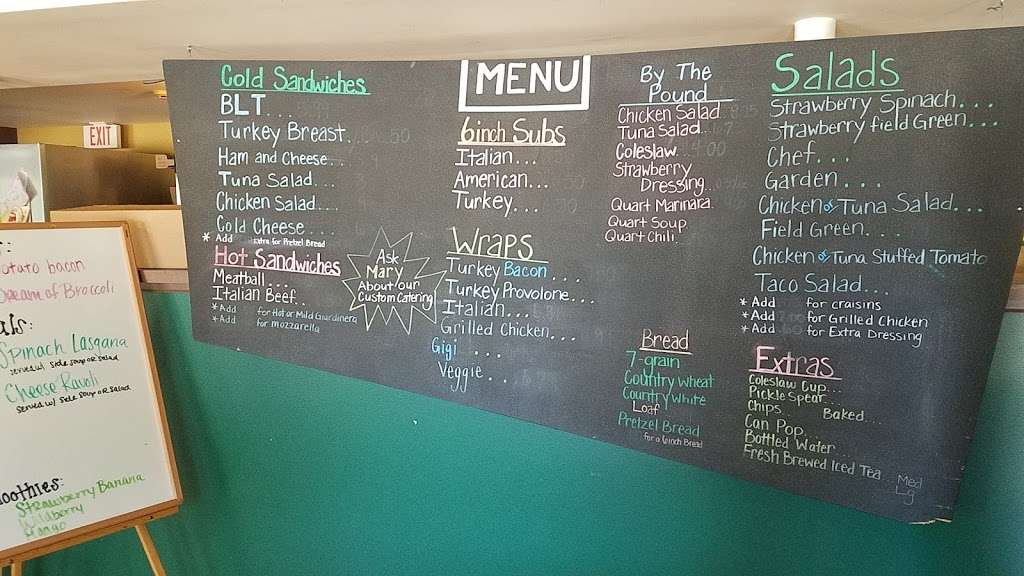 EXIT
potato bacon
Cream of Broccoli
Spinach Lasgana
served w/ side soup OR salad
Cheese Ravoli
served w/ side soup OR salad
Strawberry Banana
Wildberry
Mango
Cold Sandwiches
BLT...
Turkey Breast...
Ham and Cheese...
Tuna Salad...
Chicken Salad...
Cold Cheese...
* Add Extra for Pretzel Bread
Hot Sandwiches
Meatball...
Italian Beef...
* Add for Hot or Mild Giardinera
* Add for mozzarella
Ask
Mary
About our
Custom Catering
MENU
6inch Subs
Italian...
American...
Turkey...
Wraps
Turkey Bacon...
Turkey Provolone...
Italian...
Grilled Chicken...
Gigi ...
Veggie...
By The
Pound
Chicken Salad
Tuna Salad
Coleslaw
Strawberry
Dressing
Quart Marinara
Quart Soup
Quart Chili
Bread
7-grain
Country Wheat
Country White
Loaf
Pretzel Bread
for a 6inch Bread
Salads
Strawberry Spinach...
Strawberry field Green...
Chef...
Garden...
Chicken or Tuna Salad...
Field Green...
Chicken or Tuna Stuffed Tomato
Taco Salad...
* Add for craisins
* Add for Grilled Chicken
* Add for Extra Dressing
Extras
Coleslaw Cup...
Pickle Spear...
Chips... Baked...
Can Pop...
Bottled Water...
Fresh Brewed Iced Tea Med
Lg